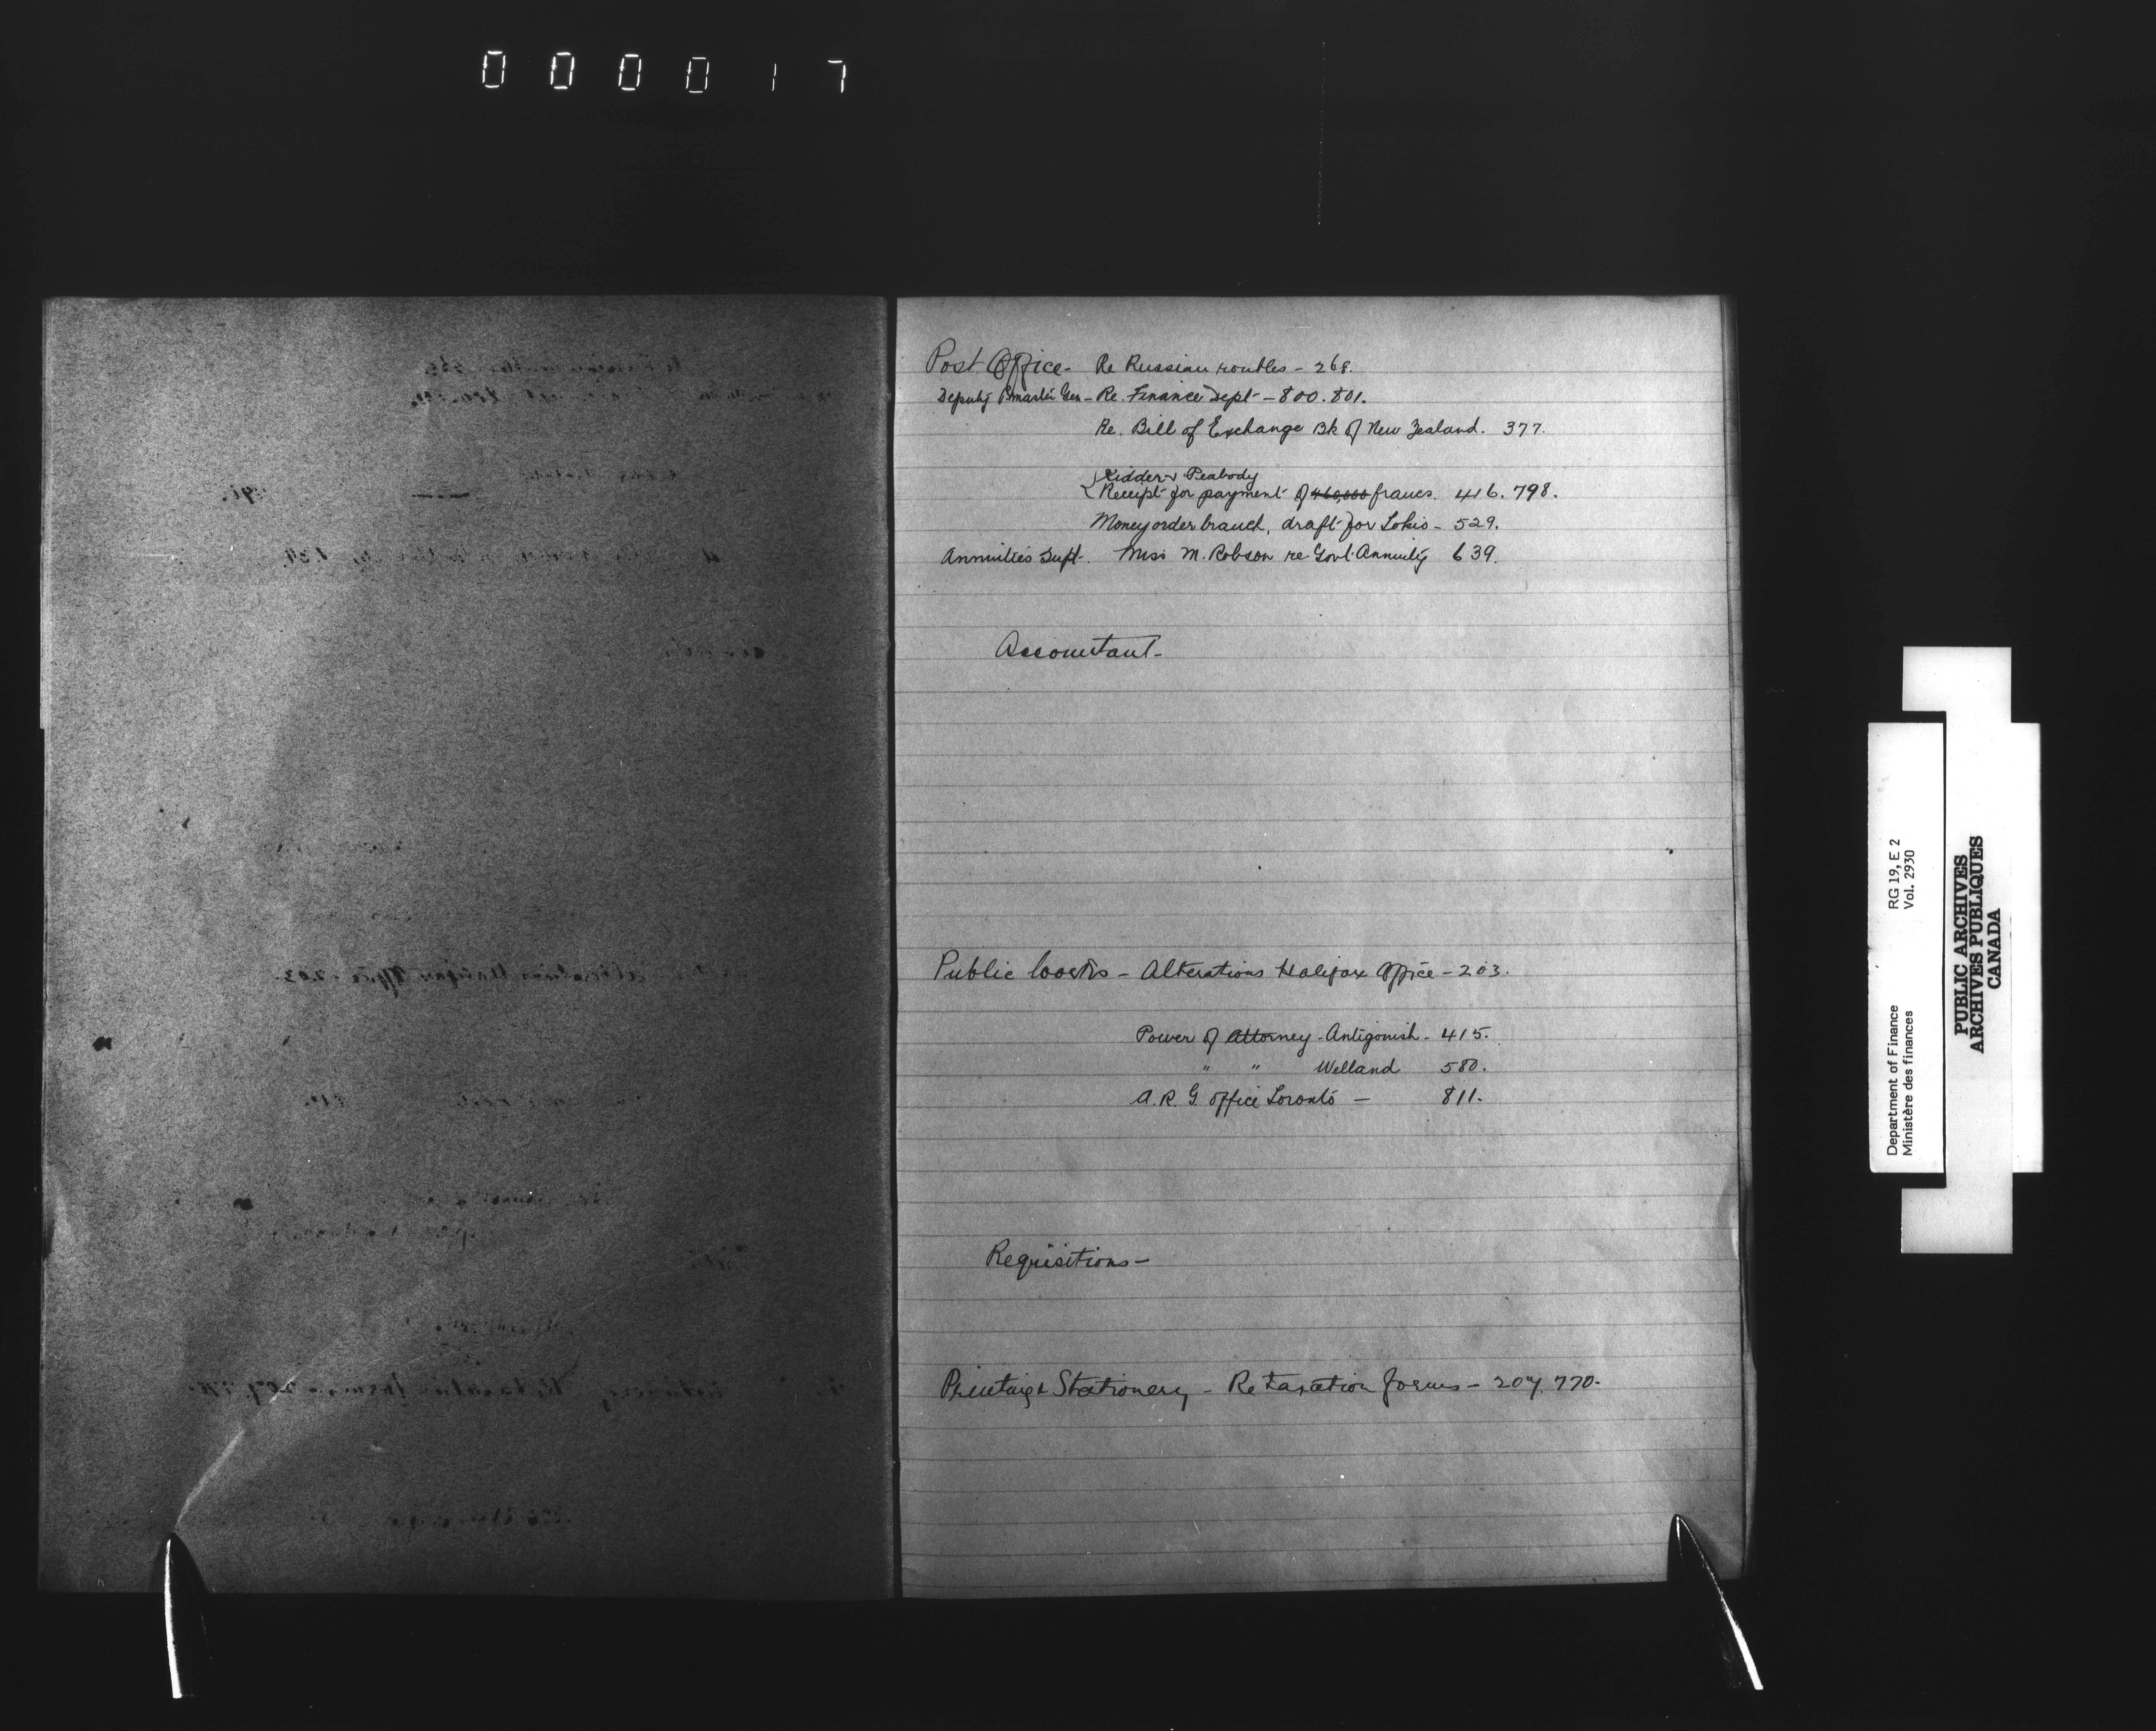 000017
Post Office - Re Russian roubles - 268.
Deputy P. Master Gen - Re. Finance Dept - 800. 801.
Re. Bill of Exchange Bk of New Zealand. 377.
Kidder & Peabody
Receipt for payment of 460,000 francs. 416. 798.
Money order branch, draft for Tokio - 529.
Annuities Supt. Miss M. Robson re Govt Annuity 639.
Accountant -
Public Works - Alterations Halifax Office - 203.
Power of Attorney - Antigonish - 415.
" " Welland 580.
A. R. G. office Toronto - 811.
Requisitions -
Printing & Stationery - Re taxation forms - 207. 770.
Department of Finance RG 19, E 2
Ministère des finances Vol. 2930
PUBLIC ARCHIVES
ARCHIVES PUBLIQUES
CANADA